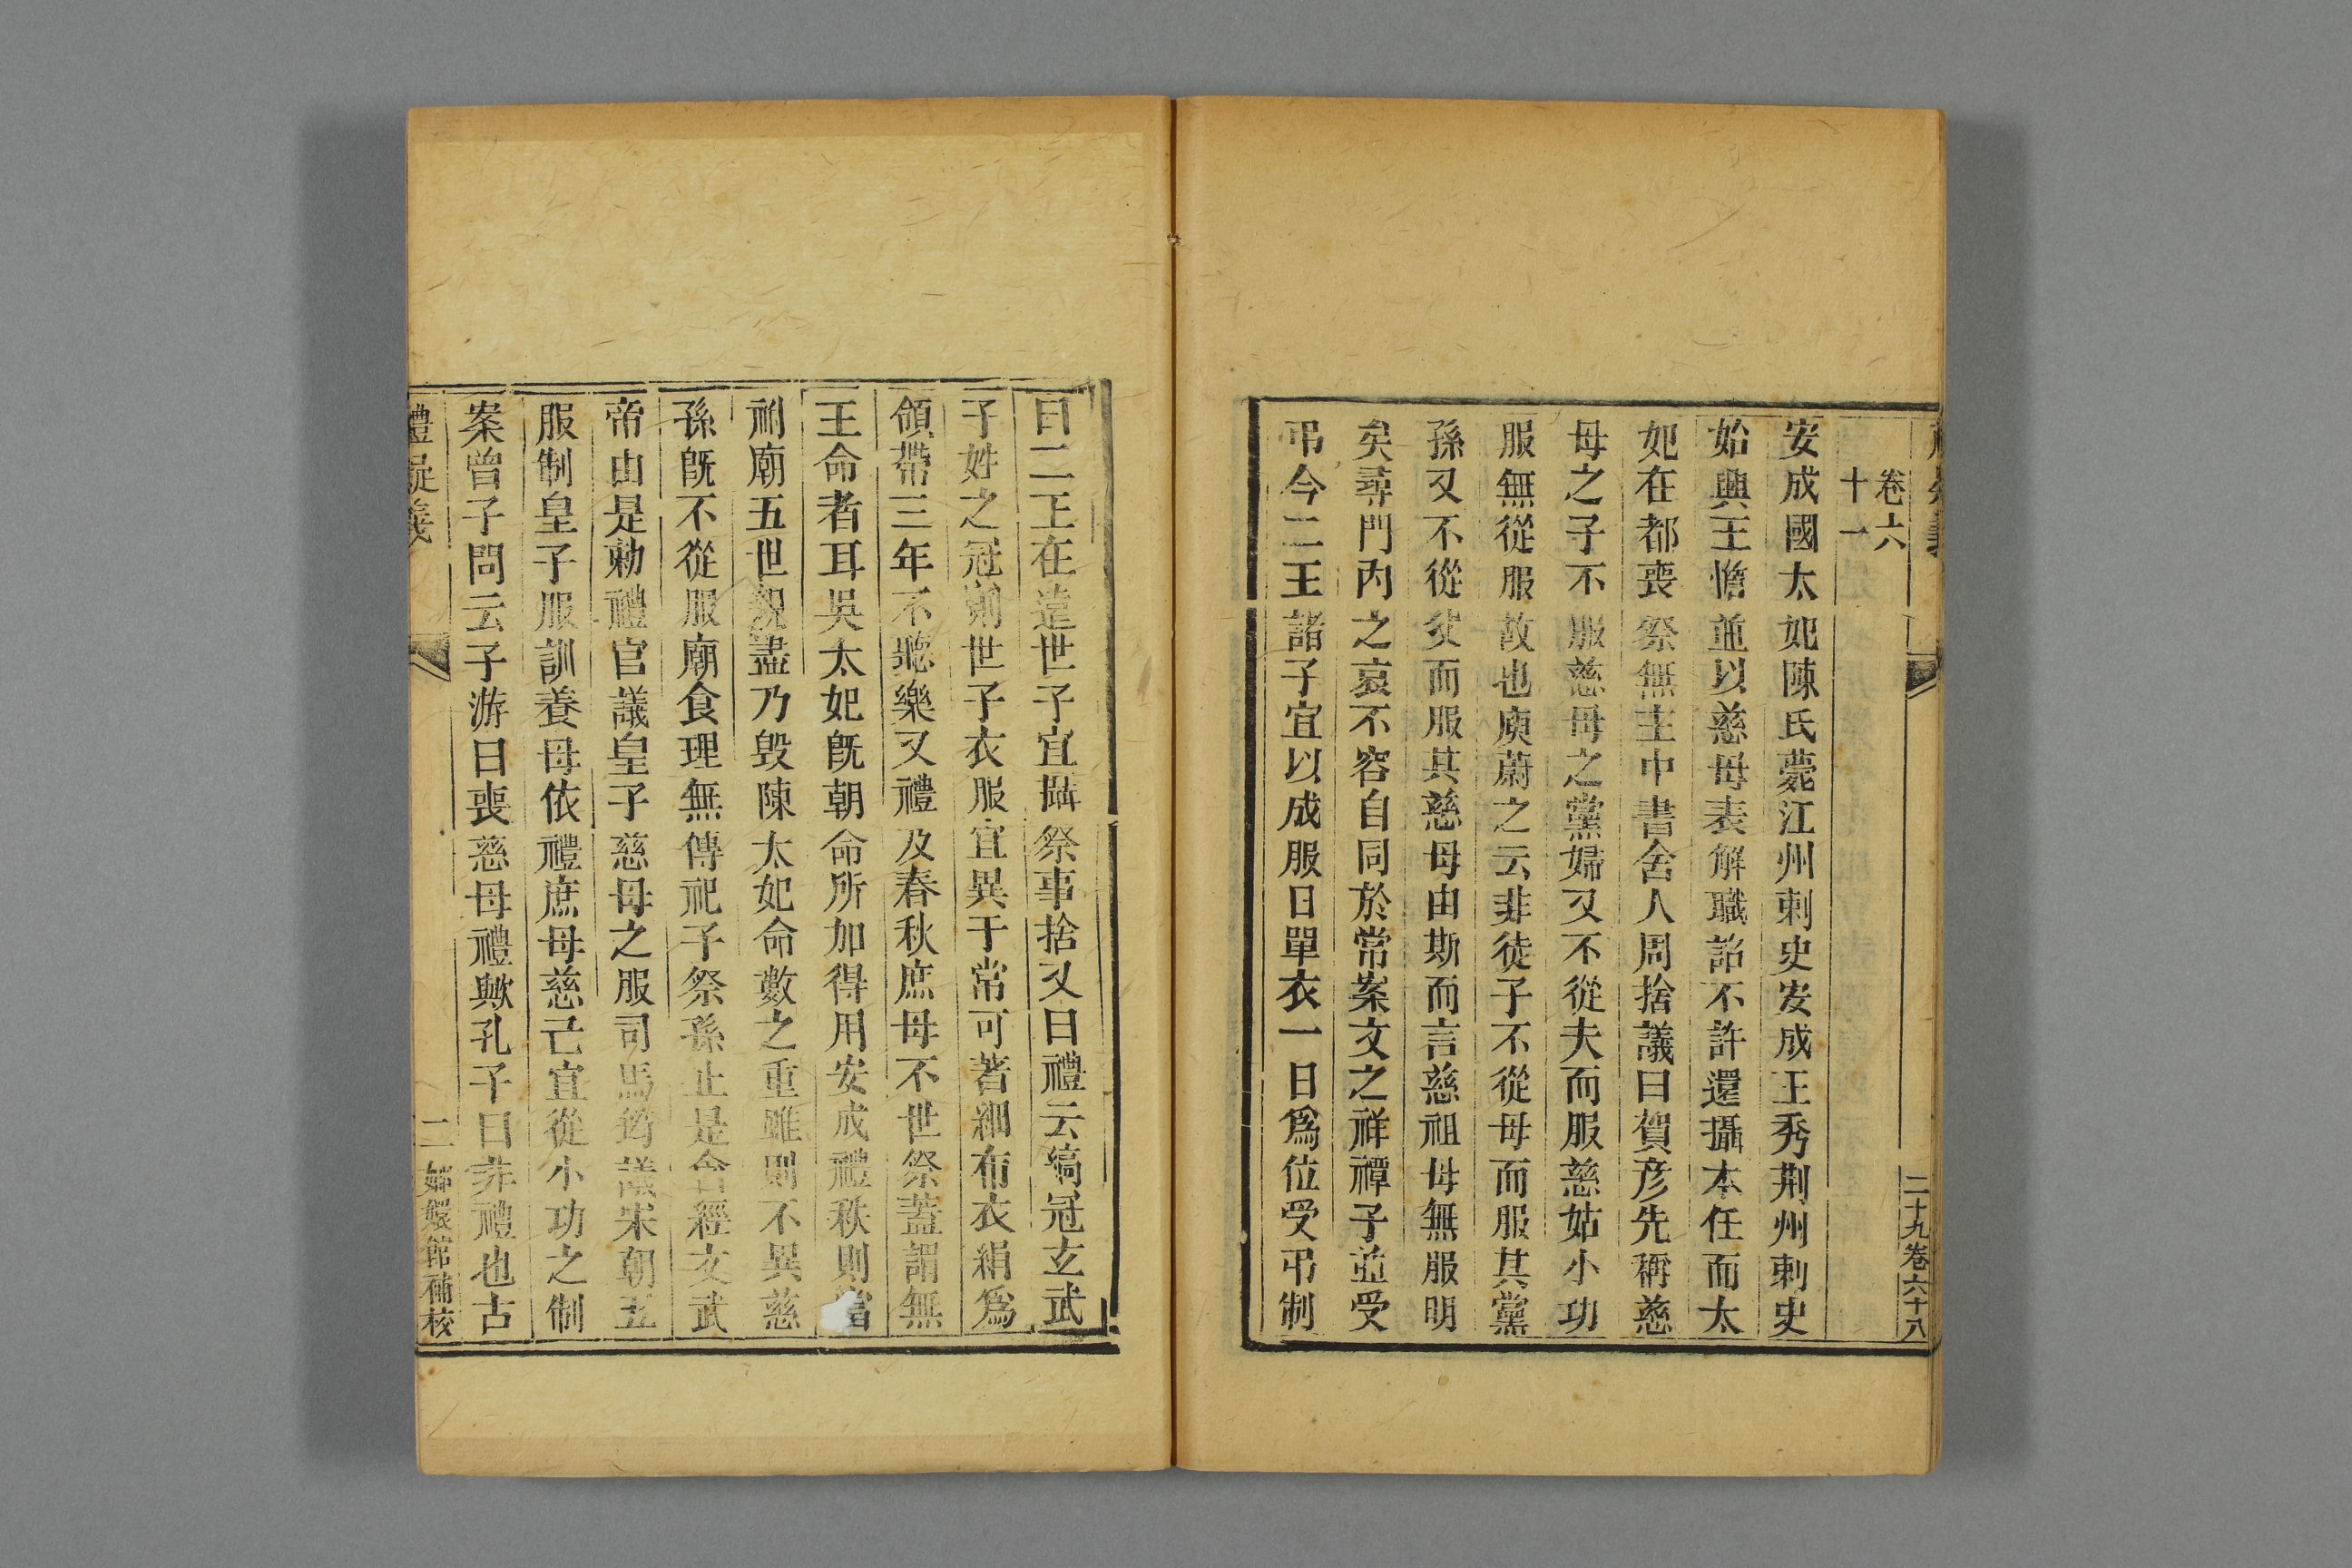 卷六
十一
安成國太妃陳氏薨江州刺史安成王秀荆州刺史
始興王憺並以慈母表解職詔不許還攝本任而太
妃在都喪祭無主中書舍人周捨議曰賀彦先稱慈
母之子不服慈母之黨婦又不從夫而服慈姑小功
服無從服故也庾蔚之云非徒子不從母而服其黨
孫又不從父而服其慈母由斯而言慈祖母無服明
矣尋門内之哀不容自同於常案文之祥禫子並受
弔今二王諸子宜以成服日單衣一日爲位受弔制
二十九卷六十八
曰二王在遠世子宜攝祭事捨又曰禮云縞冠玄武
子姓之冠則世子衣服宜異于常可著細布衣絹爲
領帶三年不聽樂又禮及春秋庶母不世祭蓋謂無
王命者耳吳太妃既朝命所加得用安成禮秩則當
祔廟五世親盡乃毀陳太妃命數之重雖則不異慈
孫既不從服廟食理無傳祀子祭孫止是會經文武
帝由是勑禮官議皇子慈母之服司馬筠議宋朝五
服制皇子服訓養母依禮庶母慈己宜從小功之制
案曾子問云子游曰喪慈母禮歟孔子曰非禮也古
禮疑義
二
嫏嬛館補校